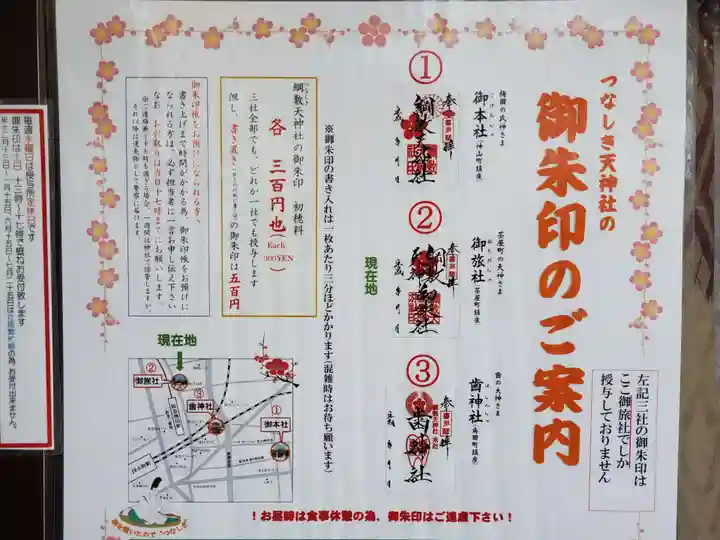 つなしき天神社の
御朱印のご案内
左記三社の御朱印は
ここ御旅社でしか
授与しておりません
①
梅田の氏神さま
御本社
(神山町鎮座)
奉拝
②
茶屋町の天神さま
御旅社
おたびしゃ
茶屋町鎮座
現在地
③
歯の天神さま
歯神社
はじんじゃ
角田町鎮座
※御朱印の書き入れは一枚あたり三分ほどかかります(混雑時はお待ち願います)
綱敷天神社の御朱印 初穂料
各 三百円也
(Each 300YEN)
三社全部でも、どれか一社でも授与します
但し、書き置きの御朱印は五百円
御朱印帳をお預けになられる方へ
書き上げまで時間がかかる為、御朱印帳をお預けに
なられる方は、必ず担当者に一言お申し伝え下さい
なお、お引取りは当日十七時までにお願いします。
※ご連絡無く十七時を過ぎる場合、一週間は神社で留置しますが
それ以降は遺失物として警察に届けます。
現在地
②
御旅社
③
歯神社
①
御本社
毎週火曜日は授与所定休日です
！お昼時は食事休憩の為、御朱印はご遠慮下さい！